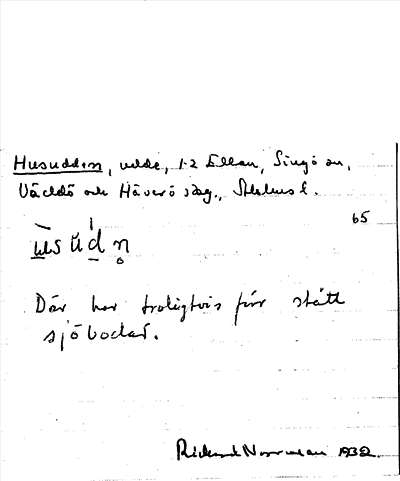 Husudden, udde, 1-2 Ellan, Singö sn,
Väddö och Häverö sdg., Sthlms l.
65
ʉsŭdn̥
Där har troligtvis förr stått
sjöbodar.
Rickard Norrman 1932.